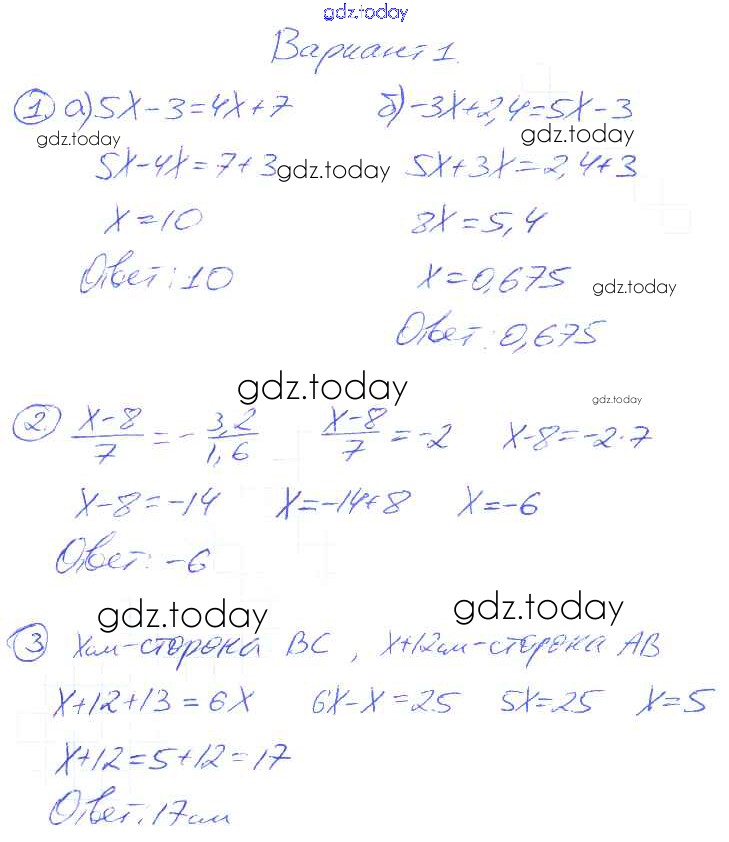 gdz.today
Вариант 1.
1 а) 5x-3=4x+7 б) -3x+2,4=5x-3
gdz.today gdz.today
5x-4x=7+3 gdz.today 5x+3x=2,4+3
x=10 8x=5,4
Ответ: 10 x=0,675 gdz.today
Ответ: 0,675
gdz.today gdz.today
2. x-8/7 = -3,2/1,6 x-8/7 = -2 x-8=-2·7
x-8=-14 x=-14+8 x=-6
Ответ: -6
gdz.today gdz.today
3 x см-сторона BC, x+12 см-сторона AB
x+12+13=6x 6x-x=25 5x=25 x=5
x+12=5+12=17
Ответ: 17 см